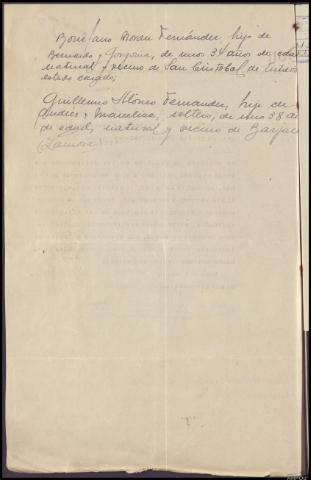 Bonifacio Moran Fernández hijo de
Bernardo y Gregoria, de unos 34 años de edad
natural y vecino de San Cristobal de Entrev
estado casado;
Guillermo Alonso Fernandez, hijo de
Andres y Marcelina, soltero, de unos 38 añ
de edad, natural y vecino de
(Zamora)